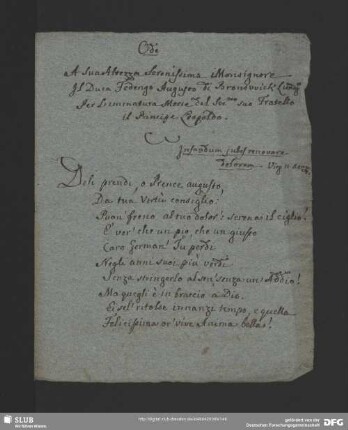 Ode
A Sua Altezza Serenissima Monsignore
Il Duca Federigo Augusto di Brandwick
Per la immatura Morte del Suo Fratello
il Principe Leopoldo.
Infandum jubes renovare
dolorem. Virg.
Deh prendi, o Prence augusto,
Da tua Vertù consiglio:
Puon' freno al tuo dolor' e serena il ciglio!
E ver' che un pio, che un giusto
Caro German' Tu perdi
Negli anni suoi più verdi
Senza stringerlo al sen', senza un' Addio!
Ma quegli è in braccio a Dio.
Ei sel' ritolse innanzi tempo, e quella
Felicissima or' vive Anima bella!
SLUB
Wir führen Wissen.
gefördert von der
Deutschen Forschungsgemeinschaft
DFG